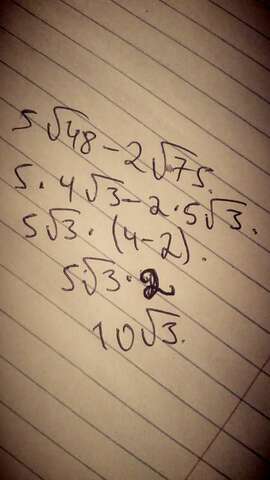 5√48 - 2√75.
5・4√3 - 2・5√3.
5√3・(4-2).
5√3・2
10√3.